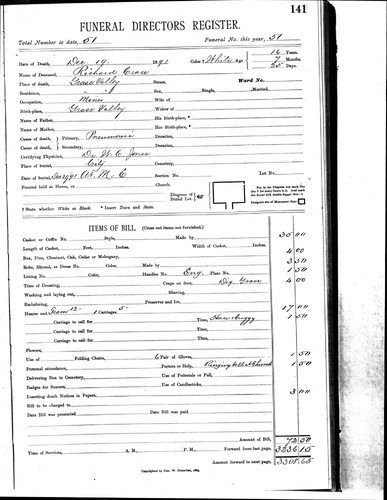 141
FUNERAL DIRECTORS REGISTER.
Total Number to date, 51 Funeral No. this year, 51
Date of Death, Dec 19. 1891 Color † White Age 16 Years
7 Months
Days
Name of Deceased, Richard
Place of death, Grass Valley Street, Ward No.
Residence, " Sex, Single, Married,
Occupation, Miner Wife of
Birth-place, Grass Valley Widow of
Name of Father, His Birth-place, *
Name of Mother, Her Birth-place, *
Cause of death, Primary, Pneumonia Duration,
Cause of death, Secondary, Duration,
Certifying Physician, Dr W. C. Jones Residence,
Place of burial, City Cemetery,
Date of burial, Section No. Lot No.
Funeral held at House, or Church,
Diagram of Burial Lot
† State whether White or Black. * Insert Town and State.
ITEMS OF BILL. (Cross out items not furnished.)
Casket or Coffin No. Style, Made by 35 00
Length of Casket, Feet, Inches, Width of Casket, Inches.
Box, Pine, Chestnut, Oak, Cedar or Mahogany, 4 00
Robe, Shroud, or Dress No. Color, Made by 3 50
Lining No. Color, Handles No. Eng. Plate No. 1 50
Time of Dressing, Crape on door, Dig. Grave 4 00
Washing and laying out, Shaving,
Embalming, Preserver and Ice,
Hearse and Team 12- 1 Carriages 5- 17 00
Carriage to call for Time, Buggy 1 50
Carriage to call for Time,
Carriage to call for Time,
Flowers,
Use of Folding Chairs, 6 Pair of Gloves, 1 50
Personal attendance, Porters or Help, Ringing Bell at Church 1 50
Delivering Box in Cemetery, Use of Pedestals or Pall,
Badges for Bearers, Use of Candlesticks,
Inserting death Notices in Papers, 3 00
Bill to be charged to
Date Bill was presented Date Bill was paid
Amount of Bill, 72 50
Time of Services, A. M., P. M., Forward from last page, 3236 15
Amount forward to next page, 3308.65